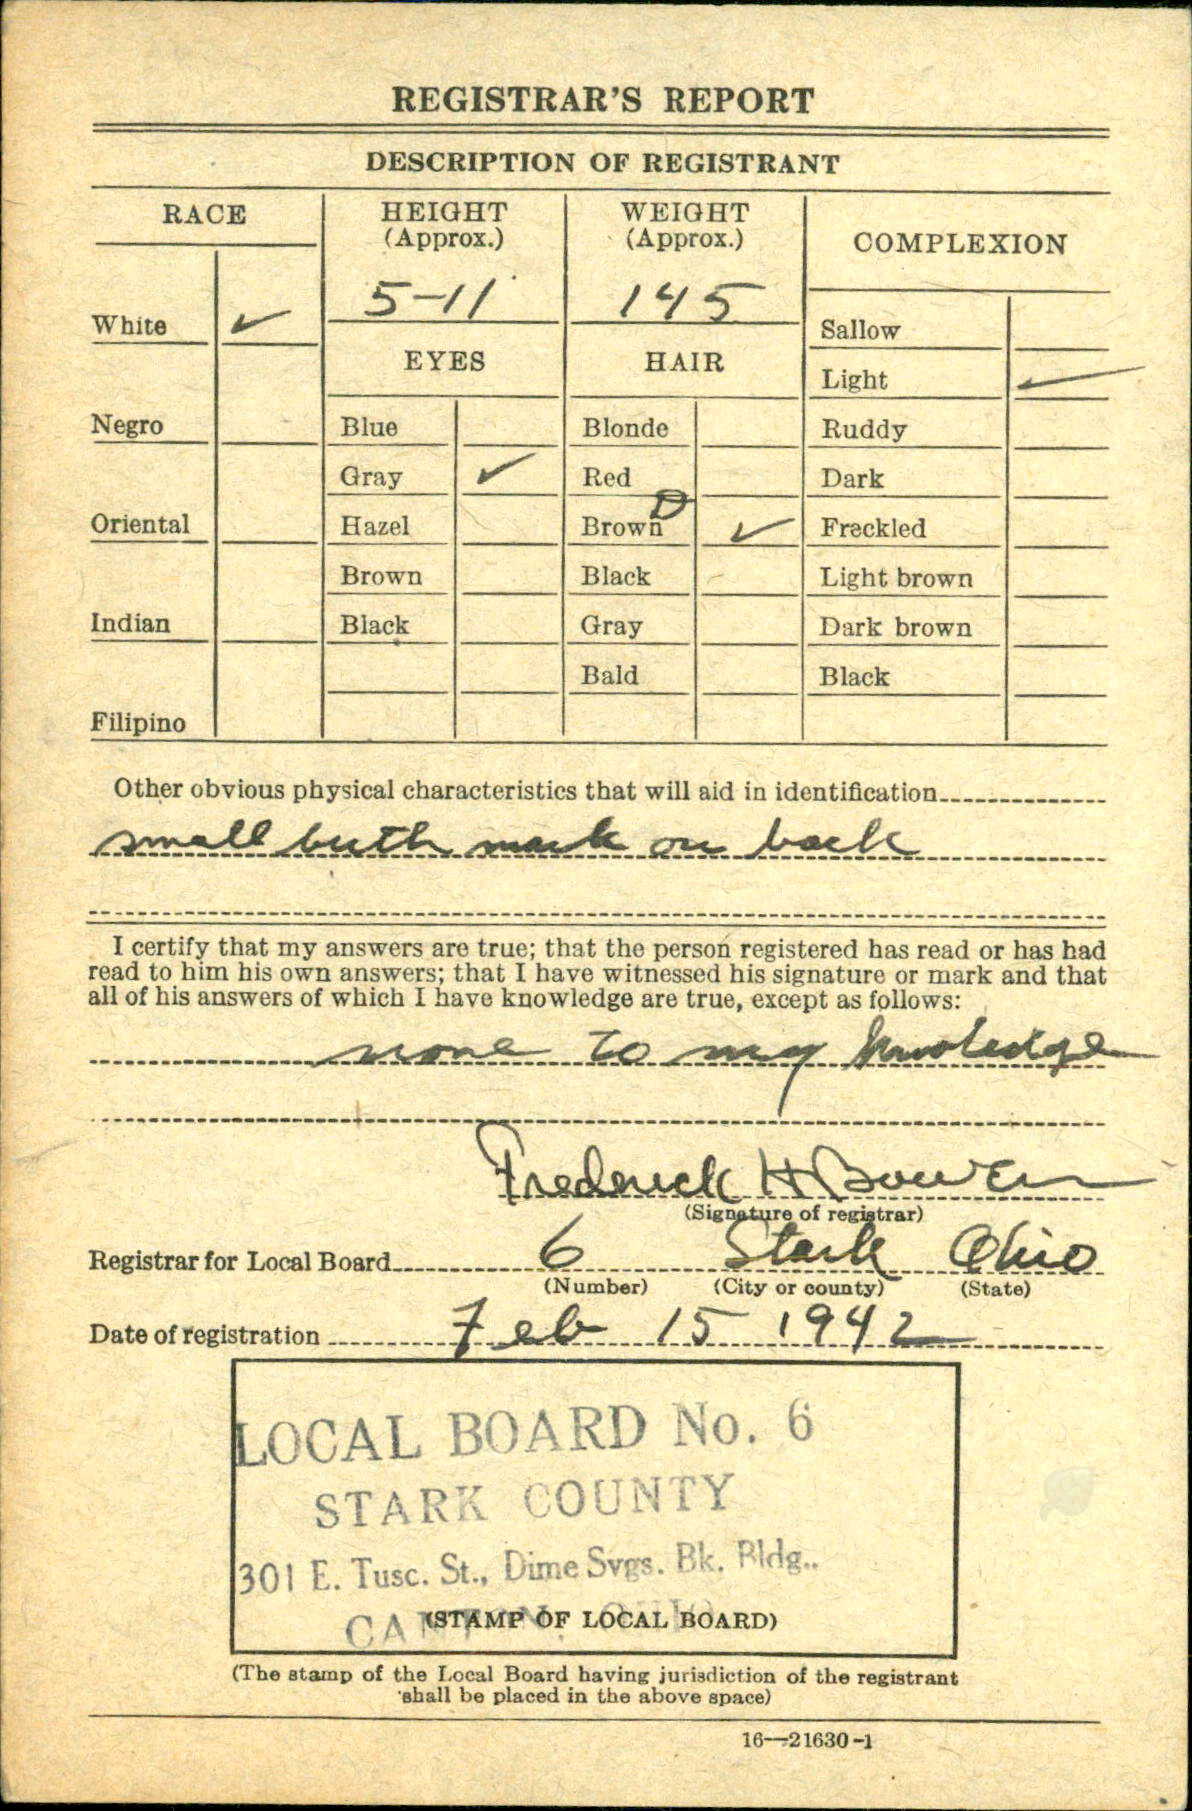 REGISTRAR'S REPORT
DESCRIPTION OF REGISTRANT
RACE
HEIGHT
(Approx.)
WEIGHT
(Approx.)
COMPLEXION
5-11
145
White ✓
Sallow
EYES
HAIR
Light ✓
Negro
Blue
Blonde
Ruddy
Gray ✓
Red
Dark
Oriental
Hazel
Brown D ✓
Freckled
Brown
Black
Light brown
Indian
Black
Gray
Dark brown
Bald
Black
Filipino
Other obvious physical characteristics that will aid in identification
small birth mark on back
I certify that my answers are true; that the person registered has read or has had
read to him his own answers; that I have witnessed his signature or mark and that
all of his answers of which I have knowledge are true, except as follows:
none to my knowledge
Frederick H Bowen
(Signature of registrar)
Registrar for Local Board 6 Stark Ohio
(Number) (City or county) (State)
Date of registration Feb 15 1942
LOCAL BOARD No. 6
STARK COUNTY
301 E. Tusc. St., Dime Svgs. Bk. Bldg..
CANTON, OHIO
(STAMP OF LOCAL BOARD)
(The stamp of the Local Board having jurisdiction of the registrant
shall be placed in the above space)
16—21630-1